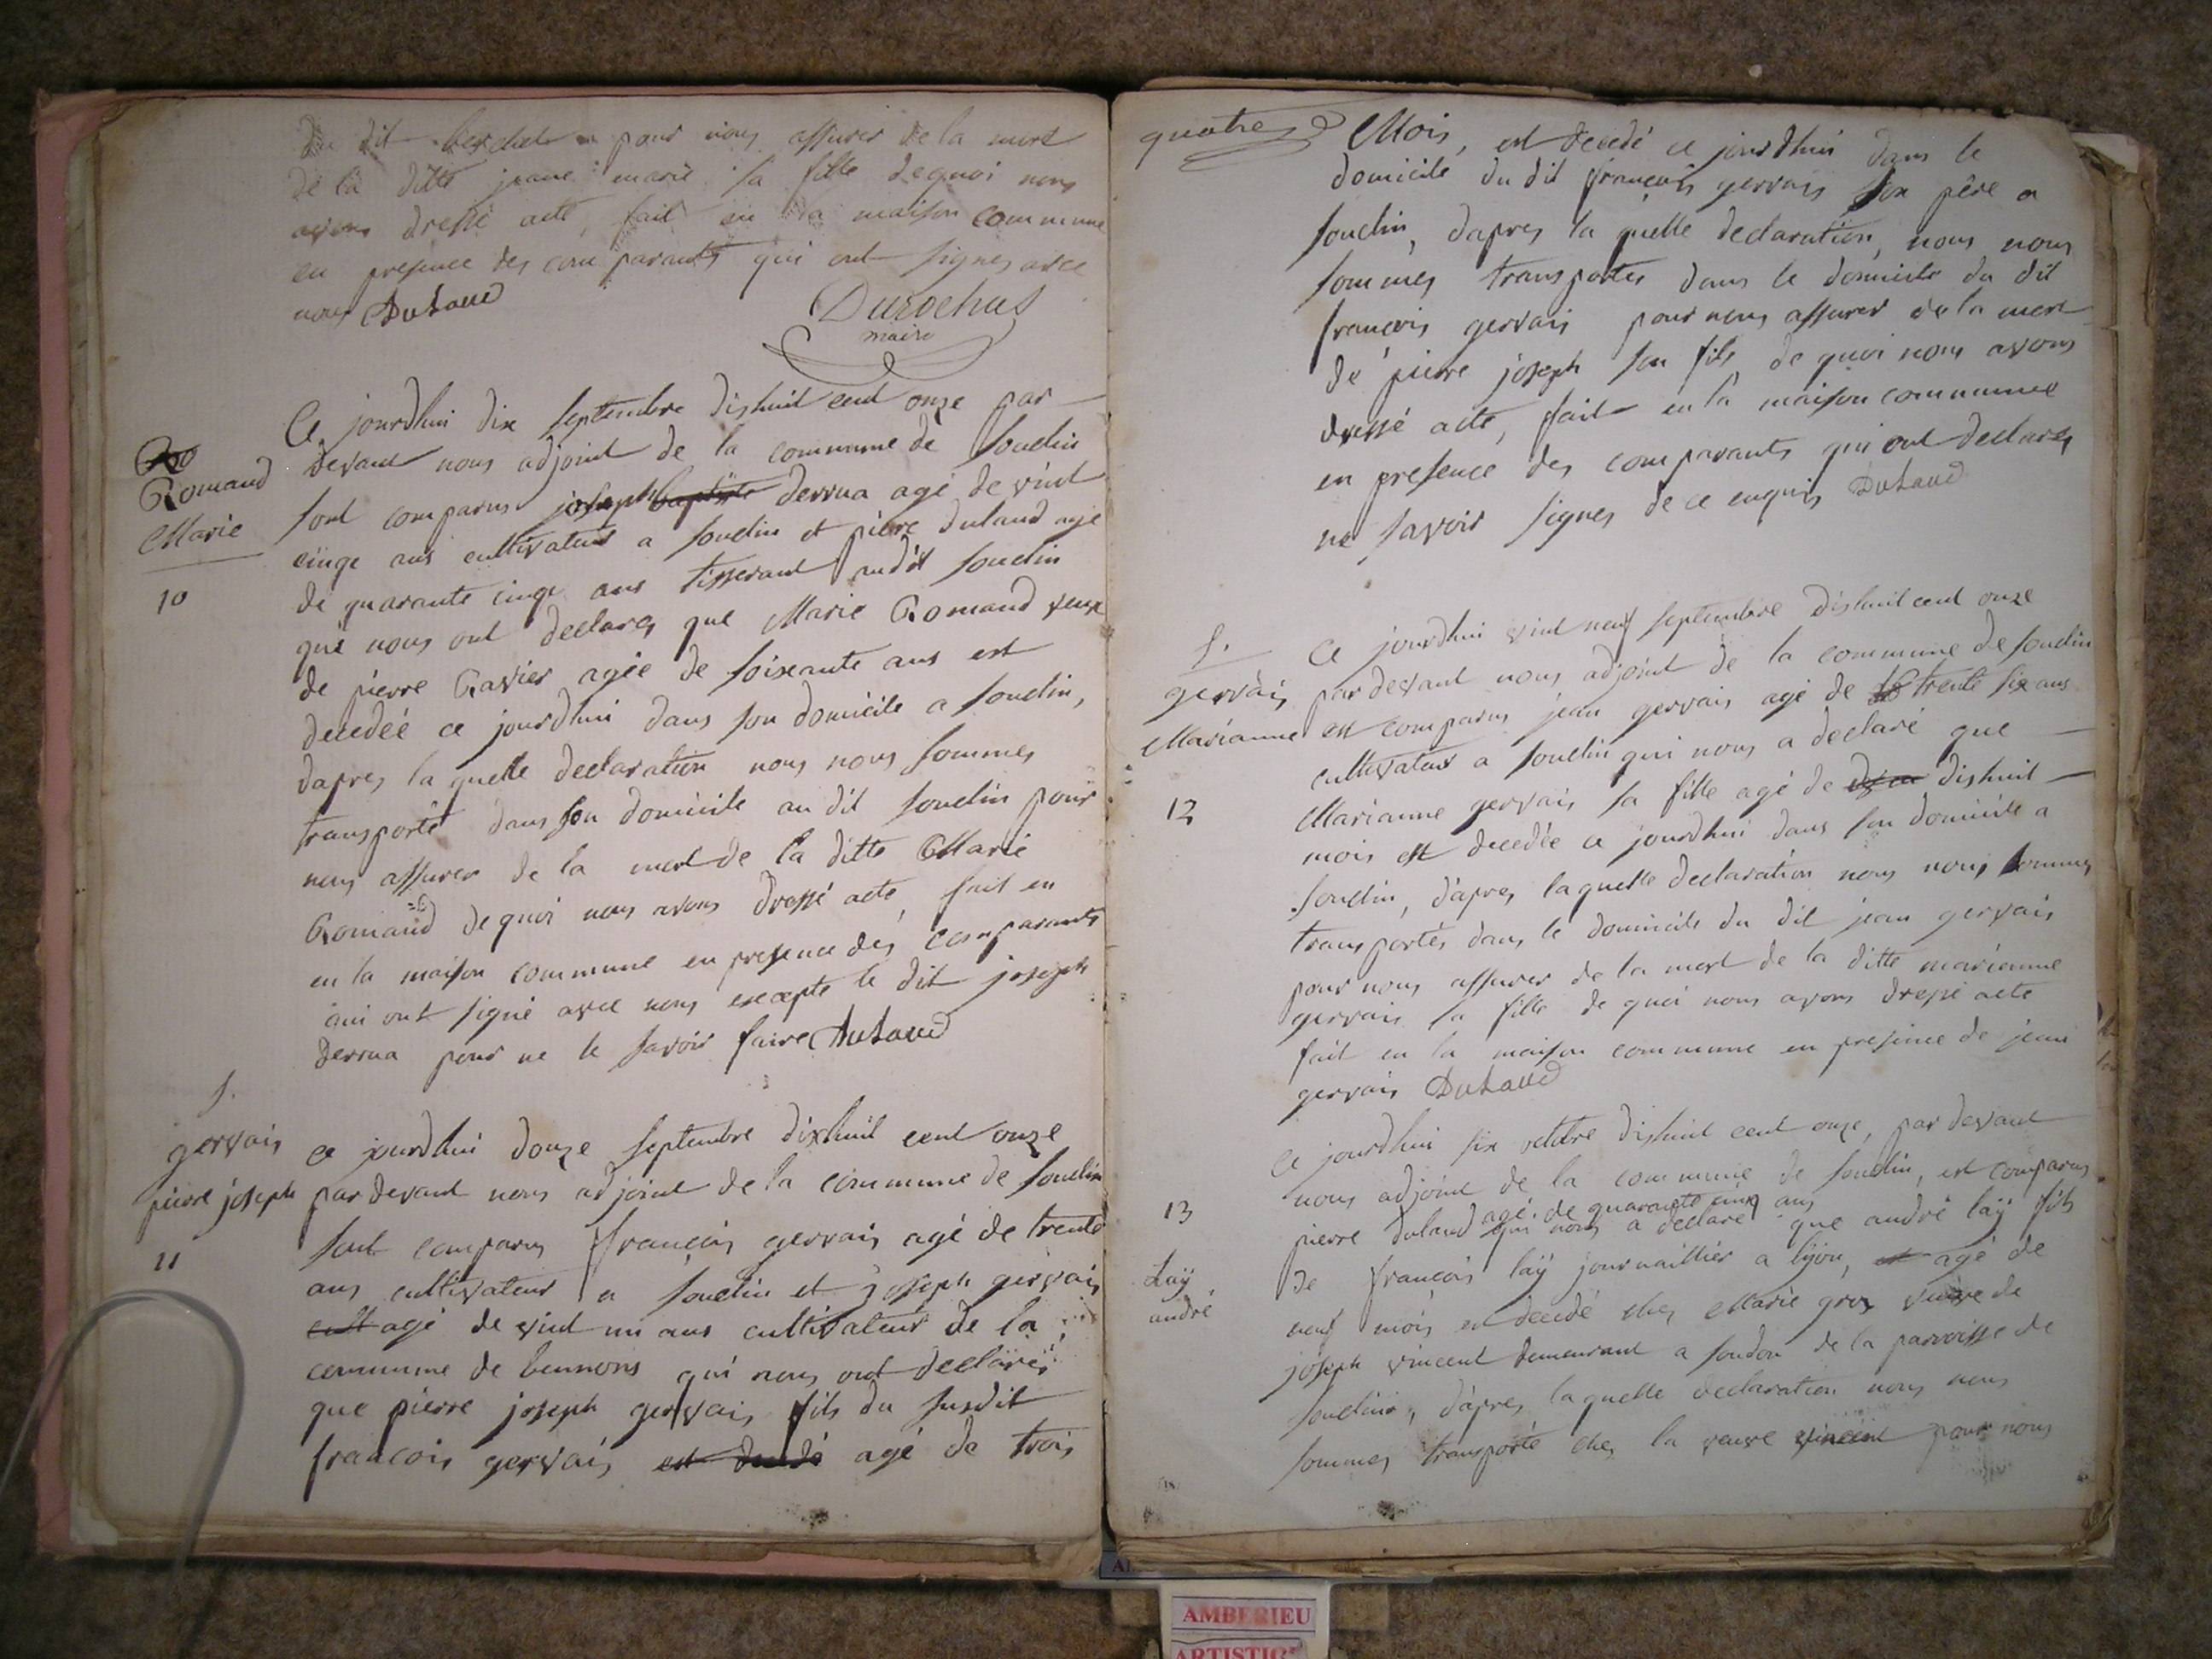 du dit pour nous assurer de la mort
de la ditte jeane marie sa fille dequoi nous
avons dressé acte, fait en la maison commune
en presence des comparants qui ont signes avec
nous Duraud
Durochas
maire
Ce jourdhui dix septembre dishuit cent onze par
Romand
devant nous adjoint de la commune de Souclin
Marie
sont comparus joseph baptiste derrua agé de vint
cinqe ans cultivateur a souclin et pierre dulaud agé
10
de quarante cinqe ans tisserant audit souclin
qui nous ont declares que Marie Romand veuve
de pierre Ravier agée de soixante ans est
decedéé ce jourdhui dans son domicile a souclin,
dapres la quelle declaration nous nous sommes
transporté dans son domicile au dit souclin pour
nous assurer de la mort de la ditte Marie
Romand dequoi nous avons dressé acte, fait en
en la maison commune en presence des comparants
qui ont signé avec nous excepte le dit joseph
derrua pour ne le savoir faire
f.
gervais
ce jourdhui douze septembre dixhuit cent onze
pierre joseph
par devant nous adjoint de la commune de souclin
11
sont comparus françois gervais agé de trente
ans cultivateur a souclin et joseph gervais
agé de vint un ans cultivateur de la
commune de bennons qui nous ont declarés
que pierre joseph gervais fils du susdit
francois gervais est decedé agé de trois
quatre
Mois, est decedé ce jourdhui dans le
domicile du dit françois gervais son père a
souclin, dapres la quelle declaration, nous nous
sommes transportes dans le domicile du dit
françois gervais pour nous assurer de la mort
de pierre joseph son fils, de quoi nous avons
dressé acte, fait en la maison commune
en presence des comparants qui ont declares
ne savoir signer de ce enquis
f.
Ce jourdhui vint neuf septembre dishuit cent onze
gervais
par devant nous adjoint de la commune de souclin
Marianne
est comparus jean gervais agé de trente six ans
cultivateur a souclin qui nous a declaré que
12
Marianne gervais sa fille agé de dishuit
mois est decedée ce jourdhui dans son domicile a
souclin, dapres laquelle declaration nous nous sommes
transportés dans le domicile du dit jean gervais
pour nous assurer de la mort de la ditte marianne
gervais sa fille de quoi nous avons dressé acte
fait en la maison commune en presence de jean
gervais
Ce jourdhui six octobre dishuit cent onze, par devant
nous adjoint de la commune de souclin, est comparus
13
agé de quarante cinq ans
pierre dulaud qui nous a declaré que andré laÿ fils
Laÿ
de françois laÿ journaillier a lyon, agé de
andré
neuf mois est decedé ches Marie gros veuve de
joseph vincent demeurant a soudon de la parroisse de
souclin, dapres laquelle declaration nous nous
sommes transporté ches la veuve vincent pour nous
AMBERIEU